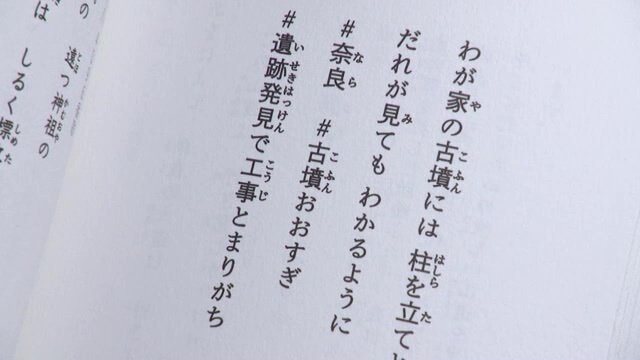 わが家の古墳には 柱を立てと
だれが見ても わかるように
#奈良 #古墳おおすぎ
#遺跡発見で工事とまりがち
の 違つ神祖の
は しるく標